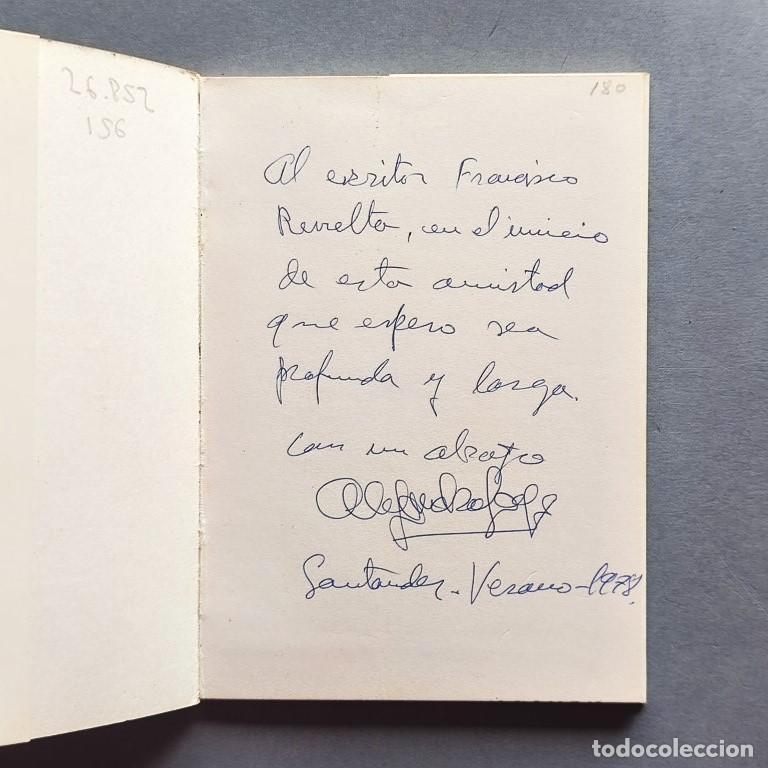 26.852
156
180
Al escritor Francisco
Revuelta, en el inicio
de esta amistad
que espero sea
profunda y larga.
con un abrazo
Santander - Verano - 1978.
todocoleccion
todocoleccion.net